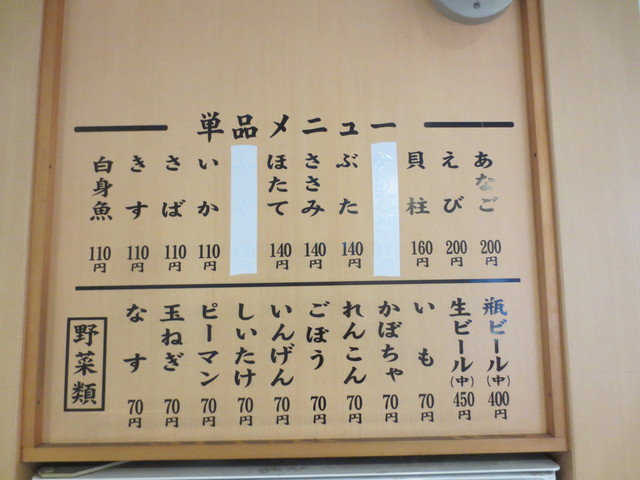 単品メニュー
あなご 200円
えび 200円
貝柱 160円
ぶた 140円
ささみ 140円
ほたて 140円
いか 110円
さば 110円
きす 110円
白身魚 110円
瓶ビール(中) 400円
生ビール(中) 450円
いも 70円
かぼちゃ 70円
れんこん 70円
ごぼう 70円
いんげん 70円
しいたけ 70円
ピーマン 70円
玉ねぎ 70円
なす 70円
野菜類